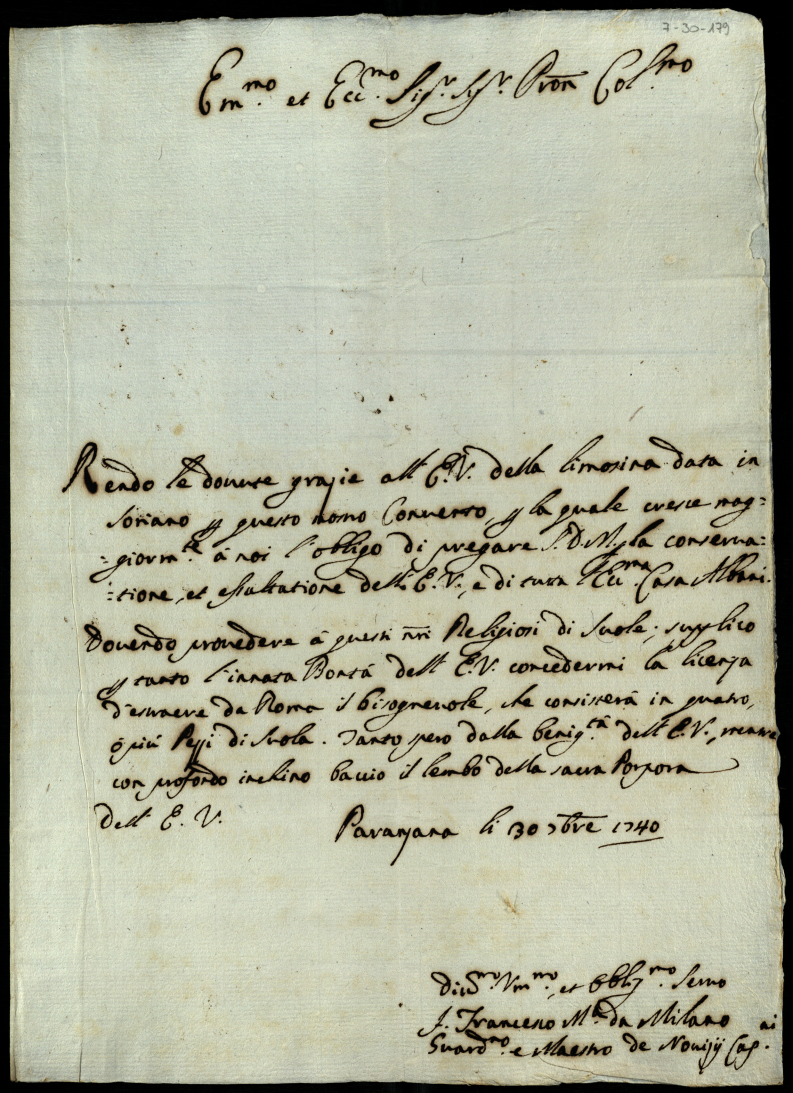 7-30-179
Em.mo et Ecc.mo Sig.r Sig.r Pron Col.mo
Rendo le douute grazie all' E.V. della limosina data in
Soriano p questo nostro Conuento, p la quale cresce mag=
=giorm.te à noi l'obligo di pregare S.D.M. p la conserua=
=tione, et essaltatione dell' E.V., e di tutta l'Ecc.ma Casa Albani.
Douendo prouedere à questi nri Religiosi di Suole; supplico
p tanto l'innata Bontà dell' E.V. concedermi la licenza
d'estraere da Roma il bisogneuole, che consisterà in quatro,
ò più Pezzi di Suola. Tanto spero dalla benig.tà dell' E.V., mentre
con profondo inchino baccio il lembo della sacra Porpora
Dell' E. V.
Paranzana li 30 7bre 1740
Diu.mo Vm.mo, et Obblig.mo Seruo
F. Francesco M.a da Milano
Guard.no e Maestro de Nouizij Cap.ni